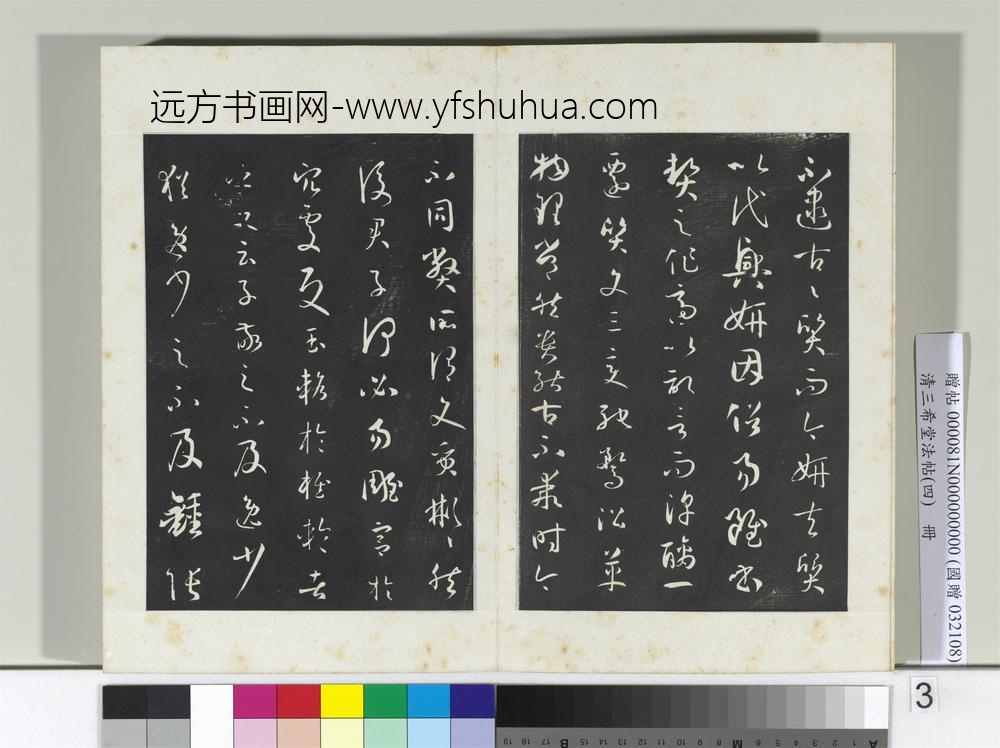 远方书画网-www.yfshuhua.com
不逮古〻質而今妍夫質
以代興妍因俗易雖書
契之作適以記言而淳醨一
遷質文三變馳騖沿革
物理常然貴能古不乖時今
不同弊所謂文質彬〻然
後君子何必易雕宮於
穴處反玉輅於椎輪者
乎又云子敬之不及逸少
猶逸少之不及鍾張
贈帖 000081N000000000 (國贈 032108)
清三希堂法帖(四) 冊
3